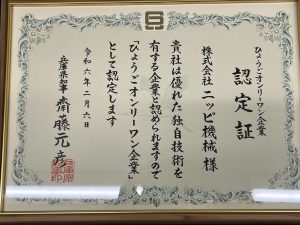 ひょうごオンリーワン企業
認定証
株式会社ニッピ機械 様
貴社は優れた独自技術を
有する企業と認められますので
「ひょうごオンリーワン企業」
として認定します
令和六年二月六日
兵庫県知事 齋藤元彦